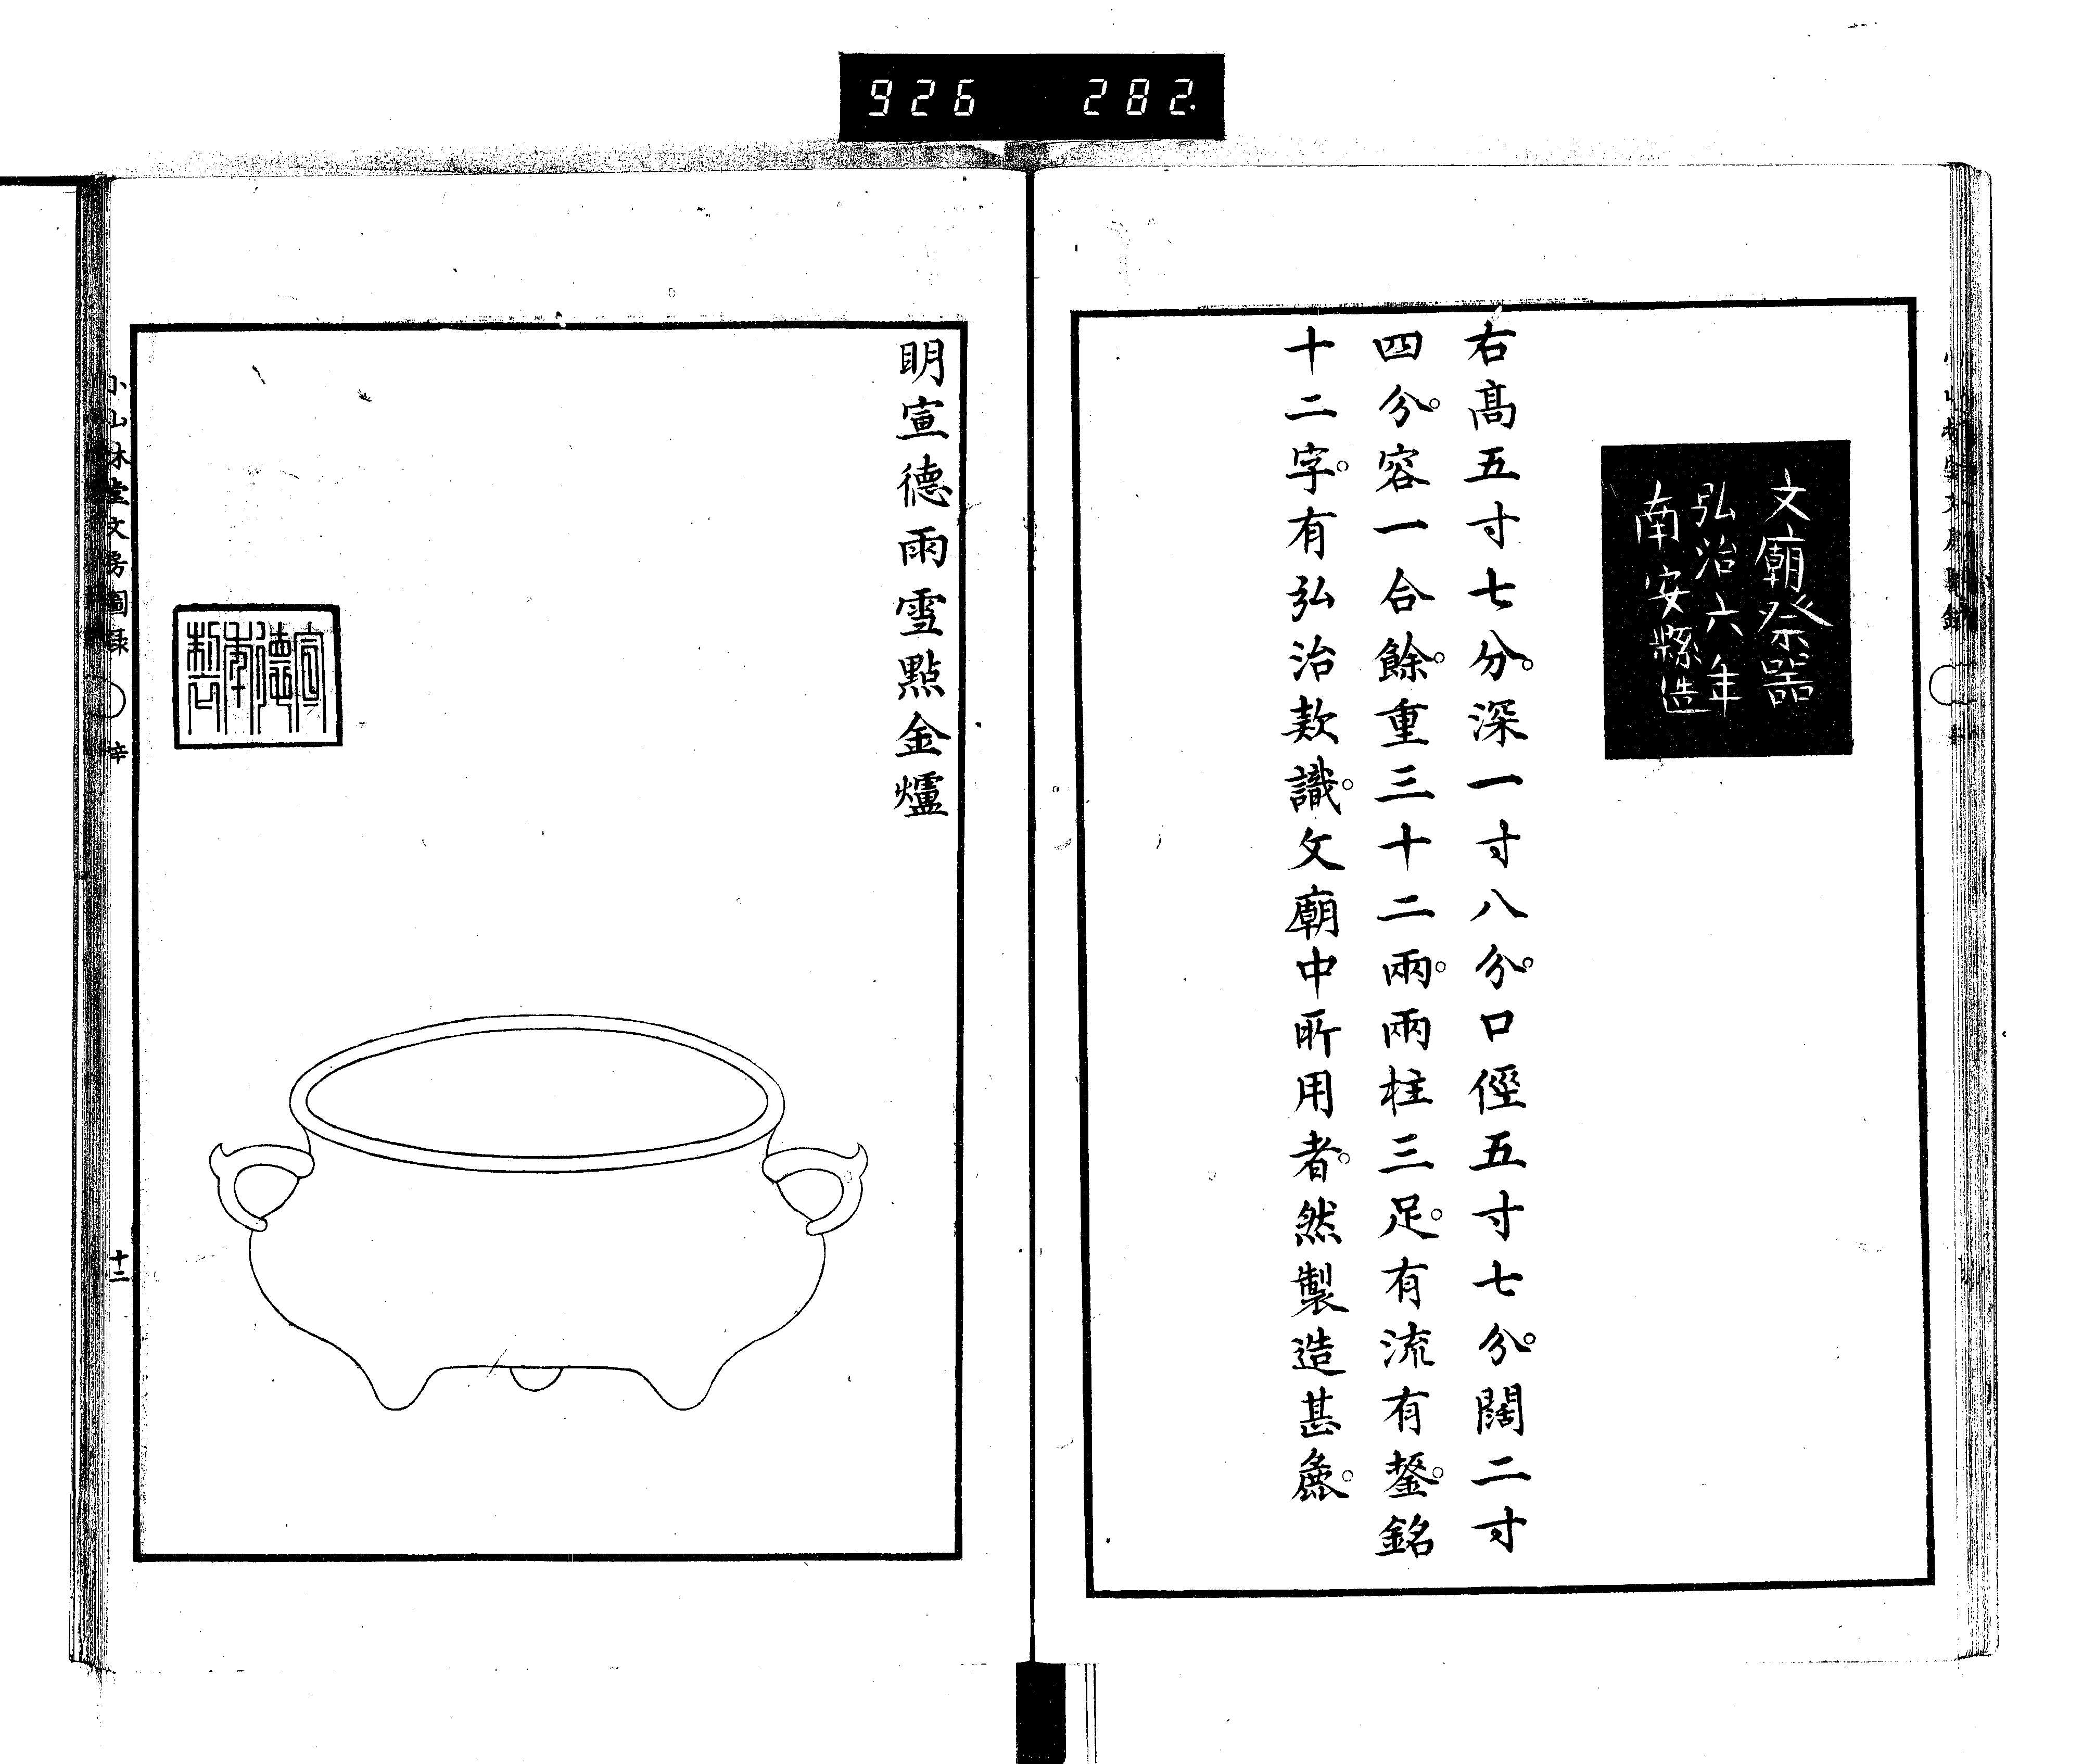 926 282.
文廟祭器
弘治六年
南安縣造
右髙五寸七分。深一寸八分。口徑五寸七分。闊二寸
四分。容一合餘。重三十二兩。兩柱三足。有流有鋬。銘
十二字。有弘治款識。文廟中所用者。然製造甚麤。
明宣德雨雪點金爐
宣德年製
小山林堂文房圖録 辛 十二